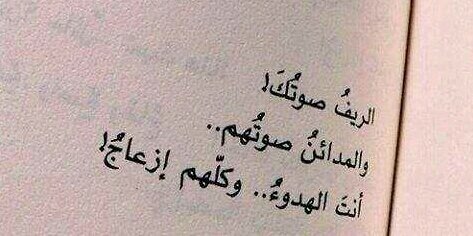 الريفُ صوتُكَ!
والمدائنُ صوتُهم..
أنتَ الهدوءُ.. وكلّهم إزعاجُ!